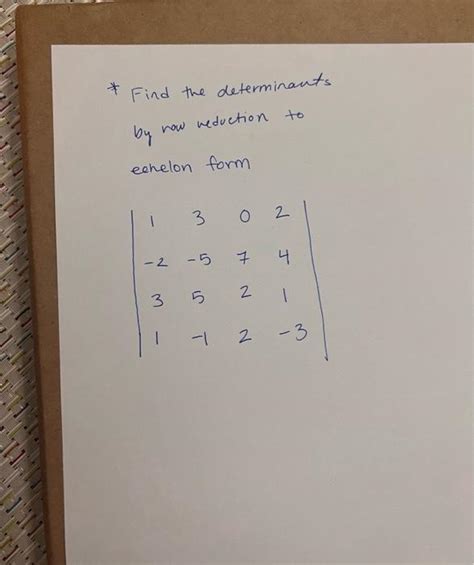 * Find the determinants
by row reduction to
echelon form
1 3 0 2
-2 -5 7 4
3 5 2 1
1 -1 2 -3